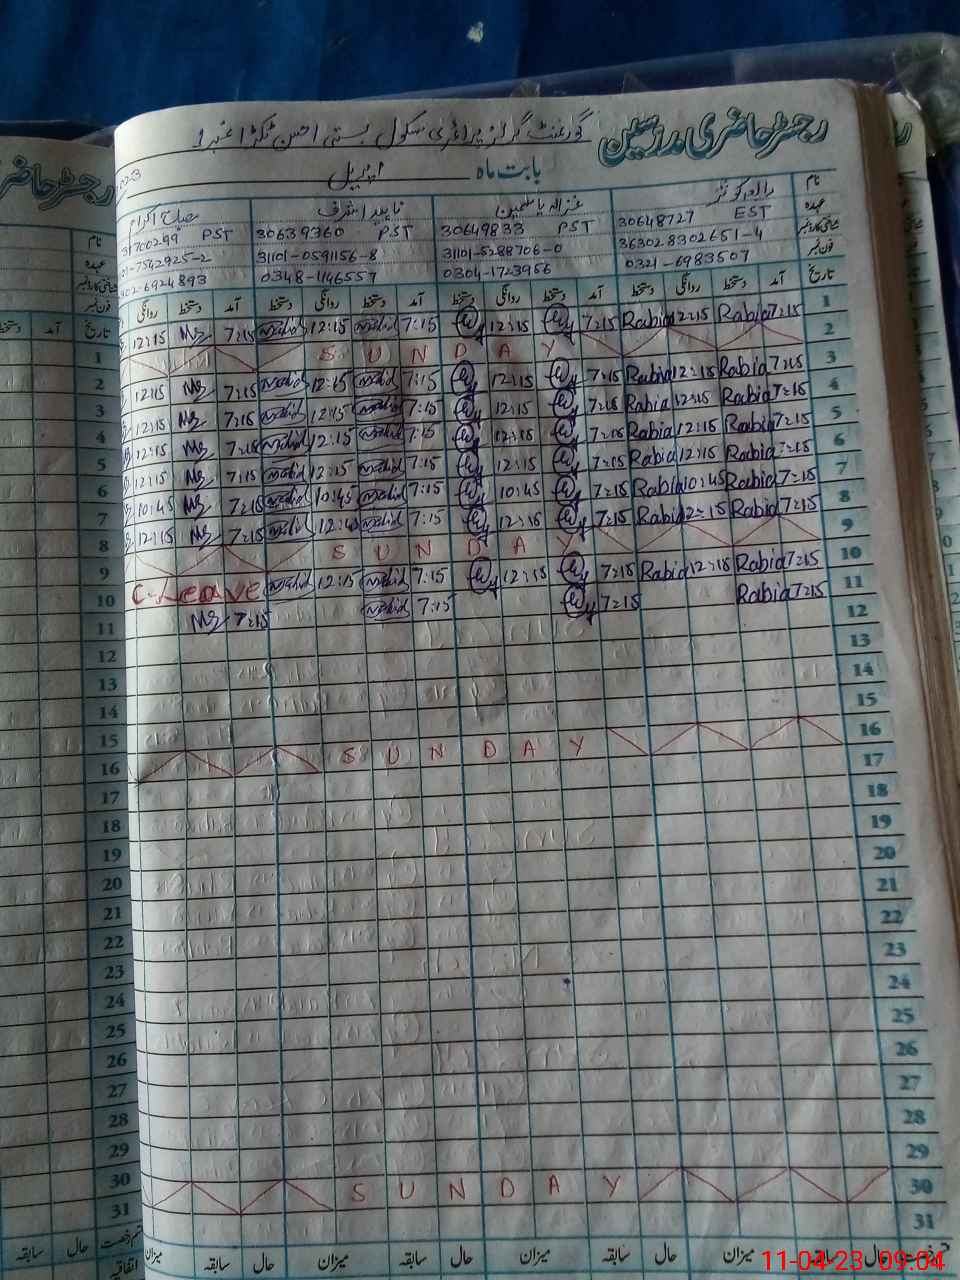 رجسٹر حاضری مدرسین
گورنمنٹ گرلز پرائمری سکول بستی احسن ٹکڑا نمبر 1
بابت ماہ اپریل
نام
عہدہ
شناختی کارڈ نمبر
فون نمبر
غزالہ یاسمین
30648727 EST
30649833 PST
30639360 PST
31700299 PST
36302-8302651-4
31101-5288706-0
31101-0591156-8
01-7542925-2
0321-6983507
0304-1723956
0348-1146557
02-6924893
تاریخ آمد دستخط روانگی دستخط آمد دستخط روانگی دستخط آمد دستخط روانگی دستخط آمد دستخط روانگی
1 7:15 Rabia 12:15 Rabia 7:15 12:15 7:15 Nahid 12:15 Nahid 7:15 12:15
2 SUNDAY
3 7:15 Rabia 12:15 Rabia 7:15 12:15 7:15 Nahid 12:15 Nahid 7:15 12:15
4 7:15 Rabia 12:15 Rabia 7:15 12:15 7:15 Nahid 12:15 Nahid 7:15 12:15
5 7:15 Rabia 12:15 Rabia 7:15 12:15 7:15 Nahid 12:15 Nahid 7:15 12:15
6 7:15 Rabia 12:15 Rabia 7:15 12:15 7:15 Nahid 12:15 Nahid 7:15 12:15
7 7:15 Rabia 10:45 Rabia 7:15 10:45 7:15 Nahid 10:45 Nahid 7:15 10:45
8 7:15 Rabia 12:15 Rabia 7:15 12:15 7:15 Nahid 12:45 Nahid 7:15 12:15
9 SUNDAY
10 7:15 Rabia 12:15 Rabia 7:15 12:15 7:15 Nahid 12:15 Nahid C-Leave
11 7:15 Rabia 7:15 7:15 Nahid 7:15
12
13
14
15
16 SUNDAY
17
18
19
20
21
22
23
24
25
26
27
28
29
30 SUNDAY
31
میزان سابقہ حال میزان حال سابقہ میزان حال سابقہ میزان
رجسٹر حاضر
نام
عہدہ
شناختی کارڈ نمبر
فون نمبر
تاریخ آمد دستخط
1
2
3
4
5
6
7
8
9
10
11
12
13
14
15
16
17
18
19
20
21
22
23
24
25
26
27
28
29
30
31
قسم رخصت حال سابقہ
اتفاقیہ
11-04-23 09:04